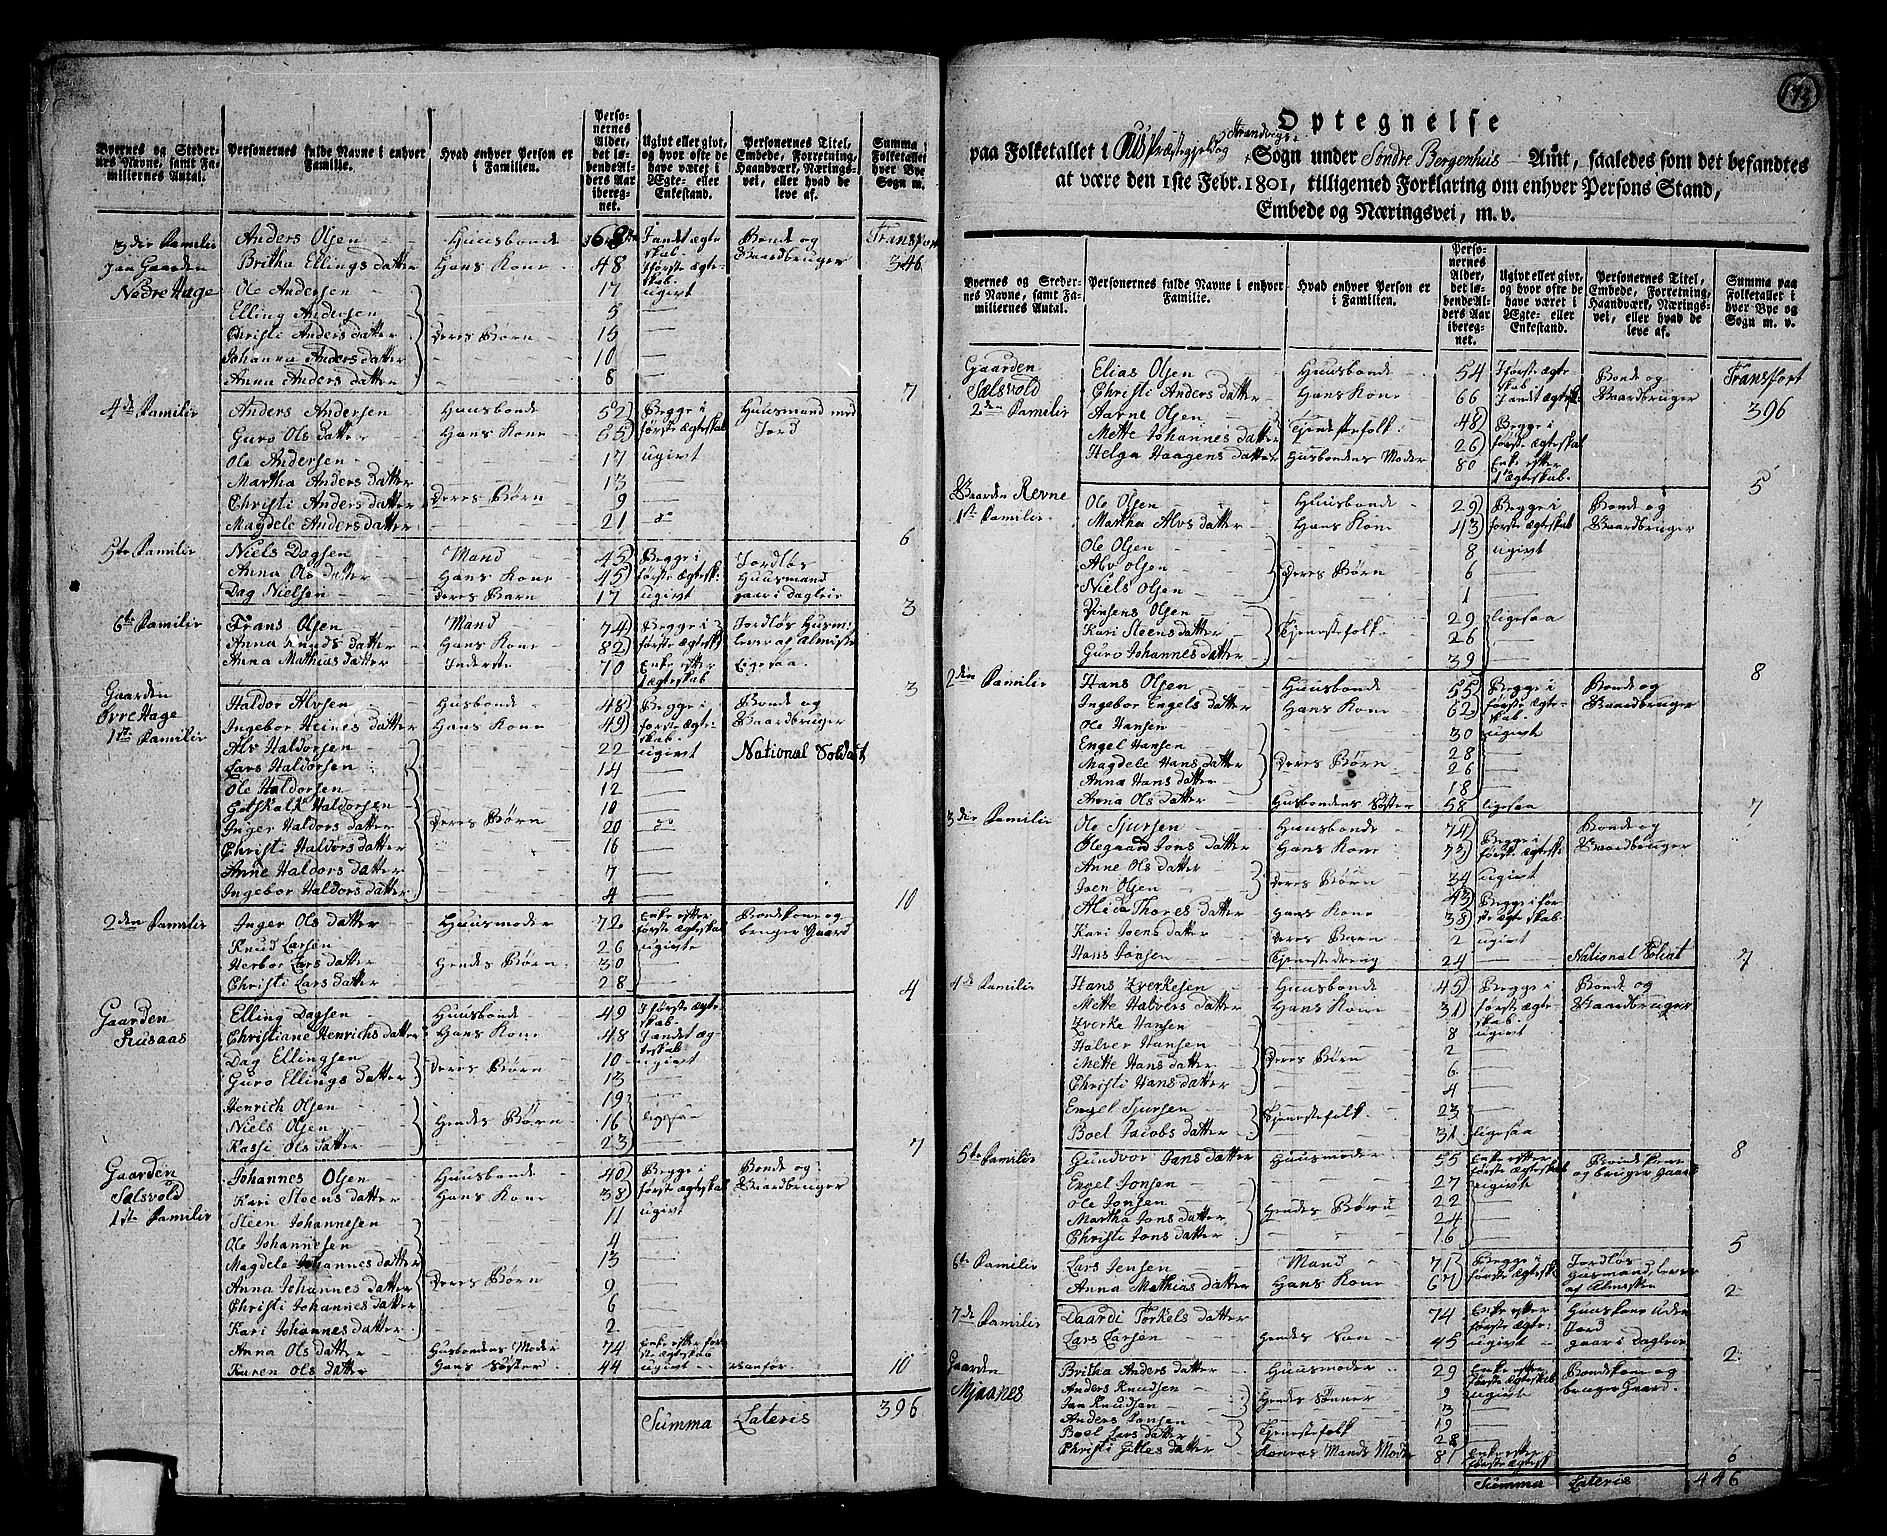 Byernes og Steder-
nes Navne, samt Fa-
miliernes Antal.
Personernes fulde Navne i enhver
Familie.
Hvad enhver Person er
i Familien.
Perso-
nernes
Alder,
det lø-
bende Al-
ders Aar
iberegn-
net.
Ugivt eller givt,
og hvor ofte de
have været i
Ægte- eller
Enkestand.
Personernes Titel,
Embede, Forretning,
Haandværk, Nærings-
vei, eller hvad de
leve af.
Summa paa
Folketallet i
hver Bye og
Sogn m. v.
3die Familie Anders Olsen Huusbonde 68 I andet ægte Bonde og Transport
paa Gaarden Britha Ellings datter Hans Kone 48 skab. I første ægte- Gaardbruger 346
Nedre Hage Ole Andersen 17 skab. ugivt
Elling Andersen 5
Christi Anders datter Deres Børn 15
Johanna Anders datter 10
Anna Anders datter 8
7
4de Familie Anders Andersen Huusbonde 52 Begge i Huusmand med
Guro Ols datter Hans Kone 55 første ægteskab Jord
Ole Andersen 17 ugivt
Martha Anders datter 13
Christi Anders datter Deres Børn 9
Magdele Anders datter 21 do
6
5te Familie Niels Dagsen Mand 45 Begge i Jordløs
Anna Ols datter Hans Kone 45 første ægtesk: Huusmand
Dag Nielsen Deres Barn 17 ugivt gaar i Dagleie
3
6te Familie Frans Olsen Mand 74 Begge i Jordløs Husm:
Anna Knuds datter Hans Kone 82 første ægtesk lever af Almisse
Anna Mathias datter Inderste 70 Enke efter Ligesaa.
1 ægteskab
3
Gaarden Haldor Alvsen Husbonde 48 Begge i Bonde og
Øvre Hage Ingebor Heines datter Hans Kone 49 første ægte- Gaardbruger
1ste Familie Alv Haldorsen 22 skab. ugivt National Soldat
Lars Haldorsen 14
Ole Haldorsen 12
Gotskalk Haldorsen 10
Inger Haldors datter Deres Børn 20 do
Christi Haldors datter 16
Anne Haldors datter 7
Ingebor Haldors datter 4
10
2den Familie Inger Ols datter Huusmoder 72 Enke efter Bondekone og
Knud Larsen 26 første ægteskab bruger Gaard
Herbor Lars datter Hendes Børn 30 ugivte
Christi Lars datter 28
4
Gaarden Elling Dagsen Huusbonde 49 I første ægte
Rusaas Christiane Henrichs datter Hans Kone 48 skab. I andet æg-
Dag Ellingsen Deres Børn 10 teskab ugivt
Guro Ellings datter 13
Henrich Olsen 19
Niels Olsen Hendes Børn 16 ligesaa
Kassi Ols datter 23
7
Gaarden Johannes Olsen Huusbonde 40 Begge i Bonde og
Salsvold Kari Steens datter Hans Kone 38 første ægteskab Gaardbruger
1ste Familie Steen Johannesen 11 ugivt
Ole Johannesen 4
Magdele Johannes datter 13
Anna Johannes datter Deres Børn 9
Christi Johannes datter 6
Kari Johannes datter 2
Anna Ols datter Husbondens Moder 74 Enke efter før-
ste ægteskab
Karen Ols datter Hans Søster 44 ugivt vanfør.
10
Summa Lateris 396
173
Optegnelse
paa Folketallet i Ous Præstegjeld og Strandvigs Sogn under Søndre Bergenhuis Amt, saaledes som det befandtes
at være den 1ste Febr. 1801, tilligemed Forklaring om enhver Persons Stand,
Embede og Næringsvei, m. v.
Byernes og Steder-
nes Navne, samt Fa-
miliernes Antal.
Personernes fulde Navne i enhver
Familie.
Hvad enhver Person er
i Familien.
Perso-
nernes
Alder,
det lø-
bende Al-
ders Aar
iberegn-
net.
Ugivt eller givt,
og hvor ofte de
have været i
Ægte- eller
Enkestand.
Personernes Titel,
Embede, Forretning,
Haandværk, Nærings-
vei, eller hvad de
leve af.
Summa paa
Folketallet i
hver Bye og
Sogn m. v.
Gaarden Elias Olsen Huusbonde 54 I første ægte Bonde og Transport
Salsvold Christi Anders datter Hans Kone 66 skab I andet ægtesk Gaardbruger 396
2den Familie Aarne Olsen Tjenestefolk 48 Begge i
Mette Johannes datter 26 første ægteskab
Helga Haagens datter Husbondens Moder 80 Enke efter
1 ægteskab.
5
Gaarden Revne Ole Olsen Huusbonde 29 Begge i Bonde og
1ste Familie Martha Alvs datter Hans Kone 43 første ægteskab Gaardbruger
Ole Olsen 8 ugivt
Alv Olsen Deres Børn 6
Niels Olsen 1
Vinsens Olsen 29 ligesaa
Kari Steens datter Tjenestefolk 26
Guro Johannes datter 39
8
2den Familie Hans Olsen Huusbonde 55 Begge i Bonde og
Ingebor Engels datter Hans Kone 62 første ægte- Gaardbruger
Ole Hansen 30 skab ugivt
Engel Hansen 28
Magdele Hans datter Deres Børn 26
Anna Hans datter 18
Anna Ols datter Husbondens Søster 58 ligesaa
7
3die Familie Ole Sjursen Huusbonde 74 Begge i Bonde og
Olegaard Jons datter Hans Kone 73 første ægtesk: Gaardbruger
Anne Ols datter 34 ugivt
Joen Olsen Deres Børn 43 Begge i før
Alida Thores datter Hans Kone 38 ste ægteskab.
Kari Joens datter Deres Barn 2 ugivt
Hans Jonsen Tjenestedreng 24 National Soldat
7
4de Familie Hans Zverkesen Huusbonde 45 Begge i Bonde og
Mette Halvers datter Hans Kone 31 første ægte- Gaardbruger
Zverke Hansen 8 skab. ugivt
Halver Hansen 2
Mette Hans datter Deres Børn 6
Christi Hans datter 4
Engel Sjursen Tjenestefolk 23
Boel Jacobs datter 31 ligesaa
8
5te Familie Gundvor Jans datter Huusmoder 55 Enke efter Bondekone
første ægteskab og bruger Gaard
Engel Jonsen 27 ugivt
Ole Jonsen 22
Martha Jons datter Hendes Børn 24
Christi Jons datter 16
5
6te Familie Lars Jensen Mand 71 Begge i Jordløs
Anna Mathias datter Hans Kone 67 første ægteskab Husmand, lever
af Almissen
2
7de Familie Daardi Torkels datter 74 Enke efter Huuskone uden
første ægte- Jord
Lars Larsen Hendes Søn 45 ugivt gaar i Dagleie
2
Gaarden Britha Anders datter Huusmoder 29 Enke efter Bondekone og
Mjaanes Anders Knudsen Hendes Sønner 9 første ægteskab ugivte bruger Gaard.
Jan Knudsen 3
Anders Jansen Tjenestefolk 19
Boel Lars datter 28
Christi Gitles datter Hannes Mands Moder 81 Enke efter
første ægtesk
6
Summa Lateris 446